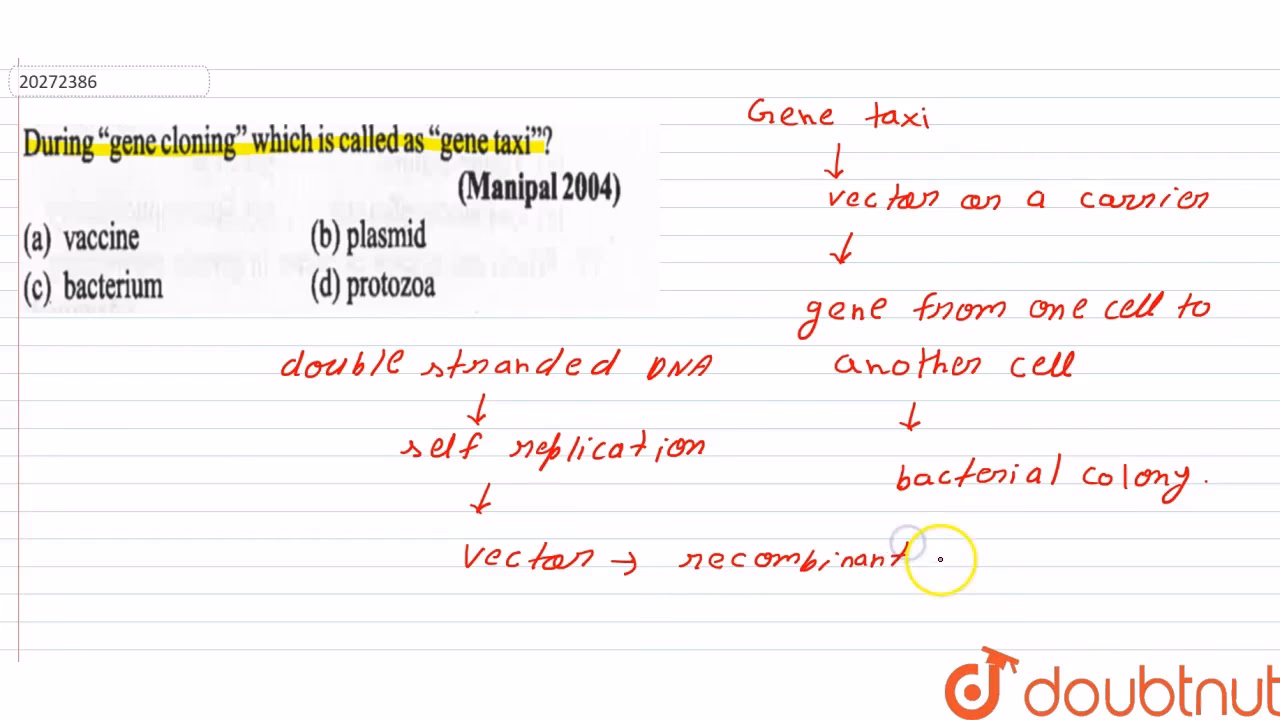 20272386
During “gene cloning” which is called as “gene taxi”?
(Manipal 2004)
(a) vaccine (b) plasmid
(c) bacterium (d) protozoa
Gene taxi
↓
vector or a carrier
↓
gene from one cell to
another cell
↓
bacterial colony.
double stranded DNA
↓
self replication
↓
vector → recombinant
doubtnut